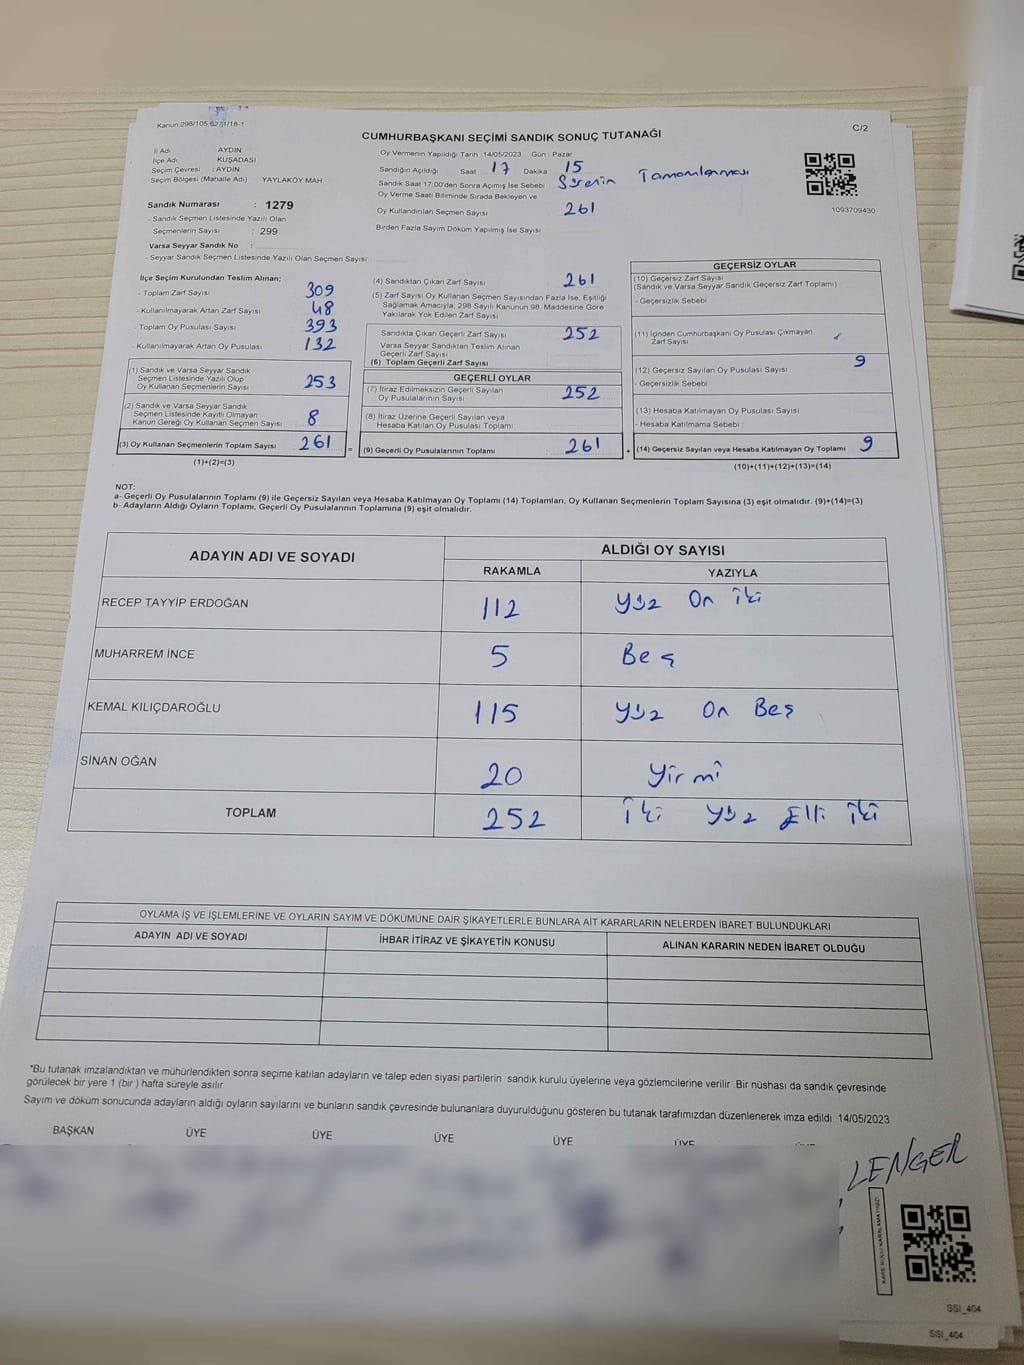 Kanun:298/105,6271/18-1
C/2
CUMHURBAŞKANI SEÇİMİ SANDIK SONUÇ TUTANAĞI
İl Adı : AYDIN
İlçe Adı : KUŞADASI
Seçim Çevresi : AYDIN
Seçim Bölgesi (Mahalle Adı) : YAYLAKÖY MAH.
Oy Vermenin Yapıldığı Tarih :14/05/2023 Gün : Pazar
Sandığın Açıldığı Saat 17 Dakika 15
Sandık Saat 17:00'den Sonra Açımış İse Sebebi Sürenin Tamamlanması
Oy Verme Saati Bitiminde Sırada Bekleyen ve
Oy Kullandırılan Seçmen Sayısı 261
Birden Fazla Sayım Döküm Yapılmış İse Sayısı
1093709430
Sandık Numarası : 1279
- Sandık Seçmen Listesinde Yazılı Olan
Seçmenlerin Sayısı : 299
Varsa Seyyar Sandık No :
- Seyyar Sandık Seçmen Listesinde Yazılı Olan Seçmen Sayısı:
İlçe Seçim Kurulundan Teslim Alınan;
- Toplam Zarf Sayısı 309
- Kullanılmayarak Artan Zarf Sayısı 48
- Toplam Oy Pusulası Sayısı 393
- Kullanılmayarak Artan Oy Pusulası 132
(1) Sandık ve Varsa Seyyar Sandık
Seçmen Listesinde Yazılı Olup
Oy Kullanan Seçmenlerin Sayısı 253
(2) Sandık ve Varsa Seyyar Sandık
Seçmen Listesinde Kayıtlı Olmayan
Kanun Gereği Oy Kullanan Seçmen Sayısı 8
(3) Oy Kullanan Seçmenlerin Toplam Sayısı 261
(1)+(2)=(3)
(4) Sandıktan Çıkan Zarf Sayısı 261
(5) Zarf Sayısı Oy Kullanan Seçmen Sayısından Fazla İse, Eşitliği
Sağlamak Amacıyla, 298 Sayılı Kanunun 98. Maddesine Göre
Yakılarak Yok Edilen Zarf Sayısı
Sandıkta Çıkan Geçerli Zarf Sayısı 252
Varsa Seyyar Sandıktan Teslim Alınan
Geçerli Zarf Sayısı
(6) Toplam Geçerli Zarf Sayısı
GEÇERLİ OYLAR
(7) İtiraz Edilmeksizin Geçerli Sayılan
Oy Pusulalarının Sayısı 252
(8) İtiraz Üzerine Geçerli Sayılan veya
Hesaba Katılan Oy Pusulası Toplamı
= (9) Geçerli Oy Pusulalarının Toplamı 261
GEÇERSİZ OYLAR
(10) Geçersiz Zarf Sayısı
(Sandık ve Varsa Seyyar Sandık Geçersiz Zarf Toplamı)
- Geçersizlik Sebebi
(11) İçinden Cumhurbaşkanı Oy Pusulası Çıkmayan
Zarf Sayısı
(12) Geçersiz Sayılan Oy Pusulası Sayısı 9
- Geçersizlik Sebebi
(13) Hesaba Katılmayan Oy Pusulası Sayısı
- Hesaba Katılmama Sebebi
+ (14) Geçersiz Sayılan veya Hesaba Katılmayan Oy Toplamı 9
(10)+(11)+(12)+(13)=(14)
NOT:
a- Geçerli Oy Pusulalarının Toplamı (9) ile Geçersiz Sayılan veya Hesaba Katılmayan Oy Toplamı (14) Toplamları, Oy Kullanan Seçmenlerin Toplam Sayısına (3) eşit olmalıdır. (9)+(14)=(3)
b- Adayların Aldığı Oyların Toplamı, Geçerli Oy Pusulalarının Toplamına (9) eşit olmalıdır.
ADAYIN ADI VE SOYADI ALDIĞI OY SAYISI
RAKAMLA YAZIYLA
RECEP TAYYİP ERDOĞAN 112 Yüz On İki
MUHARREM İNCE 5 Beş
KEMAL KILIÇDAROĞLU 115 Yüz On Beş
SİNAN OĞAN 20 Yirmi
TOPLAM 252 İki Yüz Elli İki
OYLAMA İŞ VE İŞLEMLERİNE VE OYLARIN SAYIM VE DÖKÜMÜNE DAİR ŞİKAYETLERLE BUNLARA AİT KARARLARIN NELERDEN İBARET BULUNDUKLARI
ADAYIN ADI VE SOYADI İHBAR İTİRAZ VE ŞİKAYETİN KONUSU ALINAN KARARIN NEDEN İBARET OLDUĞU
*Bu tutanak imzalandıktan ve mühürlendikten sonra seçime katılan adayların ve talep eden siyasi partilerin sandık kurulu üyelerine veya gözlemcilerine verilir .Bir nüshası da sandık çevresinde
görülecek bir yere 1 (bir ) hafta süreyle asılır
Sayım ve döküm sonucunda adayların aldığı oyların sayılarını ve bunların sandık çevresinde bulunanlara duyurulduğunu gösteren bu tutanak tarafımızdan düzenlenerek imza edildi. 14/05/2023
BAŞKAN ÜYE ÜYE ÜYE ÜYE ÜYE
LENGER
KARE KODU KARALAMAYINIZ!
SSI_404
SSI_404